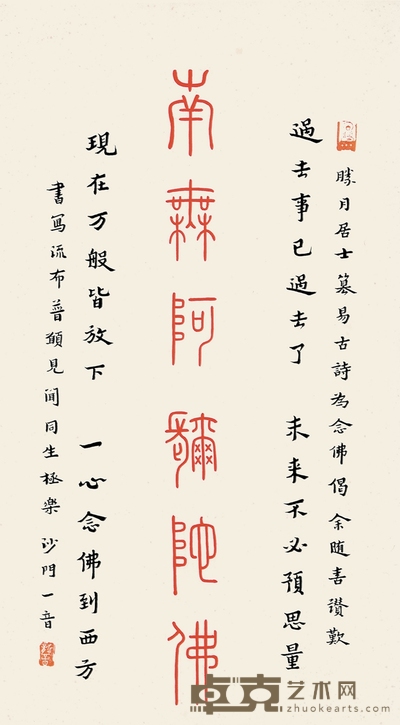 勝月居士篡易古詩為念佛偈余随喜讚歎
過去事已過去了 未来不必預思量
南無阿彌陀佛
現在万般皆放下 一心念佛到西方
書寫流布普願見聞同生極樂沙門一音
卓克艺术网
zhuokearts.com